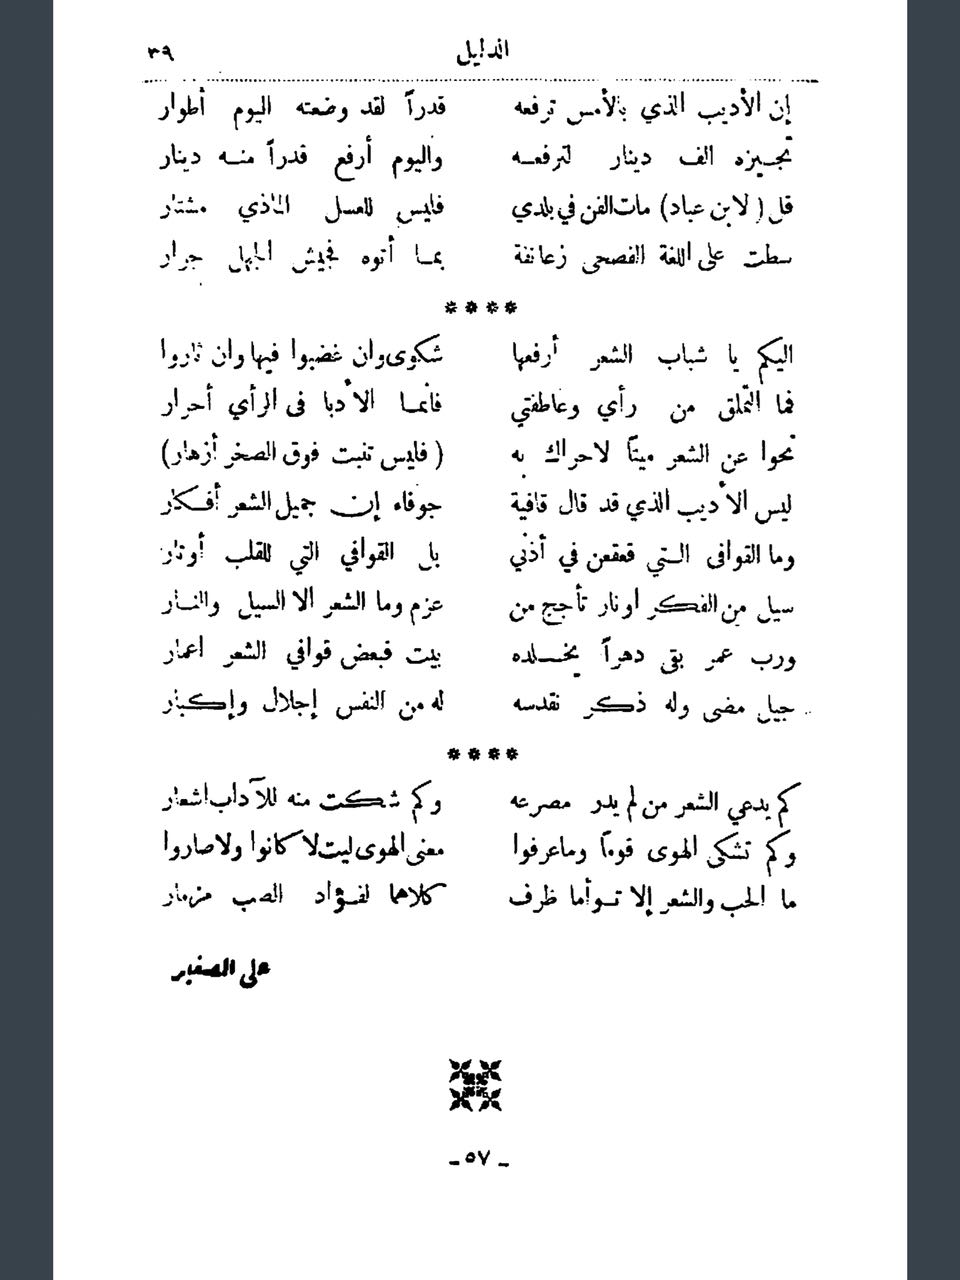 الدليل ٣٩
إن الأديب الذي بالأمس ترفعه قدراً لقد وضعته اليوم أطوار
تجيزه الف دينار لترفعه واليوم أرفع قدراً منه دينار
قل ( لابن عباد ) مات الفن في بلدي فليس للعسل الماذي مشتار
سطت على اللغة الفصحى زعانفة بما أتوه فجيش الجهل جرار
****
اليكم يا شباب الشعر أرفعها شكوى وان غضبوا فيها وان ثاروا
فما التملق من رأي وعاطفتي فانما الأدبا فى الرأي أحرار
نحوا عن الشعر ميتاً لاحراك به ( فليس تنبت فوق الصخر أزهار )
ليس الأديب الذي قد قال قافية جوفاء إن جميل الشعر أفكار
وما القوافى التي قعقعن في أذني بل القوافي التي للقلب أوتار
سيل من الفكر اونار تأجج من عزم وما الشعر الا السيل والنار
ورب عمر بقى دهراً يخلده بيت فبعض قوافي الشعر اعمار
جيل مضى وله ذكر نقدسه له من النفس إجلال وإكبار
****
كم يدعي الشعر من لم يدر مصرعه وكم شكت منه للآداب اشعار
وكم تشكى الهوى قوماً وماعرفوا معنى الهوى ليت لا كانوا ولاصاروا
ما الحب والشعر إلا توأما ظرف كلاهما لفؤاد الصب مزمار
على الصغير
ـ ٥٧ ـ